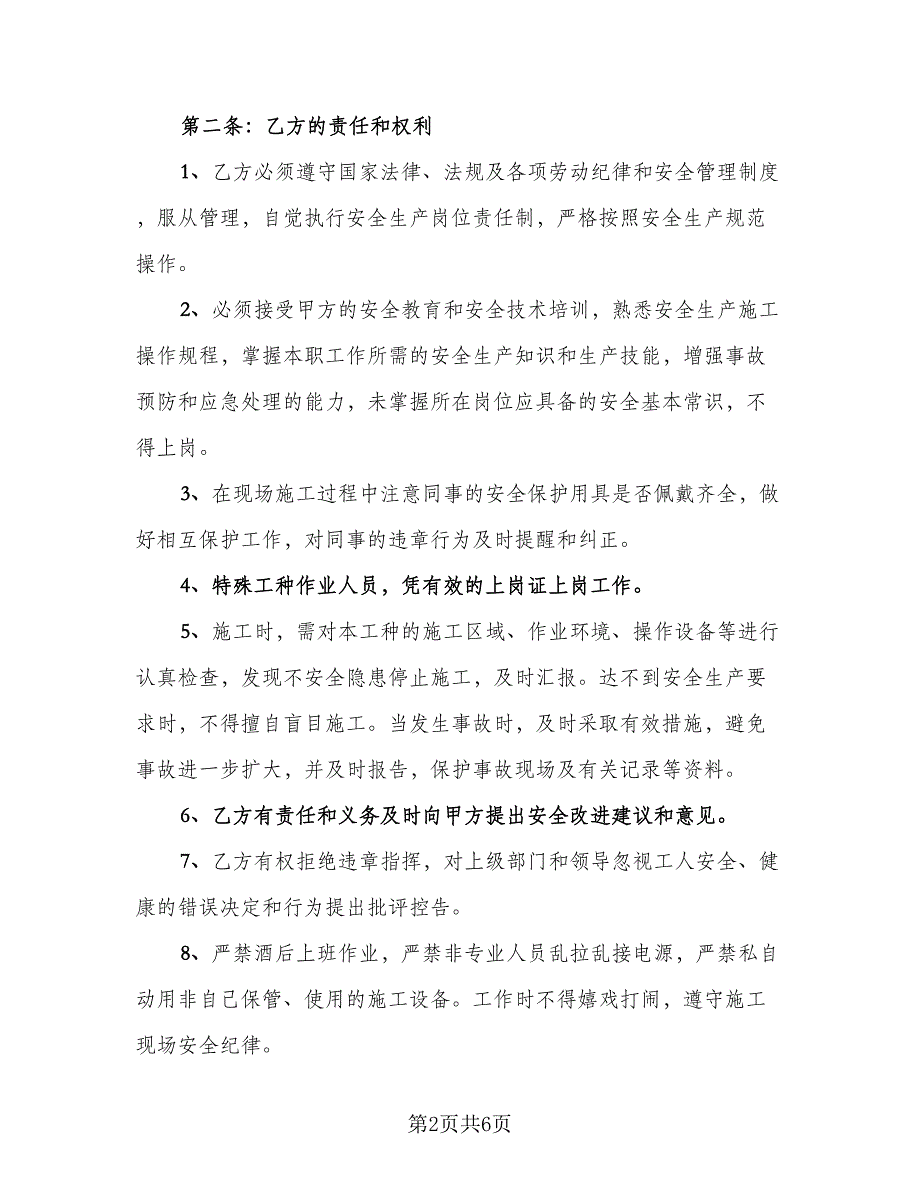 第二条：乙方的责任和权利
1、乙方必须遵守国家法律、法规及各项劳动纪律和安全管理制度
，服从管理，自觉执行安全生产岗位责任制，严格按照安全生产规范
操作。
2、必须接受甲方的安全教育和安全技术培训，熟悉安全生产施工
操作规程，掌握本职工作所需的安全生产知识和生产技能，增强事故
预防和应急处理的能力，未掌握所在岗位应具备的安全基本常识，不
得上岗。
3、在现场施工过程中注意同事的安全保护用具是否佩戴齐全，做
好相互保护工作，对同事的违章行为及时提醒和纠正。
4、特殊工种作业人员，凭有效的上岗证上岗工作。
5、施工时，需对本工种的施工区域、作业环境、操作设备等进行
认真检查，发现不安全隐患停止施工，及时汇报。达不到安全生产要
求时，不得擅自盲目施工。当发生事故时，及时采取有效措施，避免
事故进一步扩大，并及时报告，保护事故现场及有关记录等资料。
6、乙方有责任和义务及时向甲方提出安全改进建议和意见。
7、乙方有权拒绝违章指挥，对上级部门和领导忽视工人安全、健
康的错误决定和行为提出批评控告。
8、严禁酒后上班作业，严禁非专业人员乱拉乱接电源，严禁私自
动用非自己保管、使用的施工设备。工作时不得嬉戏打闹，遵守施工
现场安全纪律。
第2页共6页